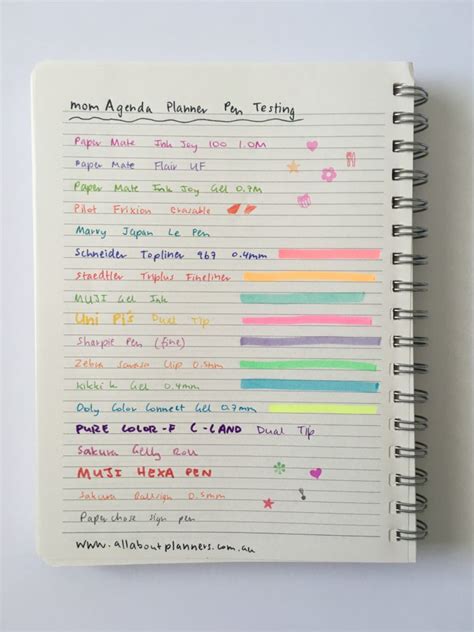 mom Agenda Planner Pen Testing
Paper Mate Ink Joy 100 1.0M
Paper Mate Flair UF
Paper Mate Ink Joy Gel 0.7M
Pilot Frixion Erasable
Marvy Japan Le Pen
Schneider Topliner 967 0.4mm
Staedtler Triplus Fineliner
MUJI Gel Ink
Uni Pi's Dual Tip
Sharpie Pen (fine)
Zebra Sarasa Clip 0.5mm
Kikki k Gel 0.4mm
Ooly Color Connect Gel 0.7mm
PURE COLOR-F C-LAND Dual Tip
Sakura Gelly Roll
MUJI HEXA PEN
Sakura Ballsign 0.5mm
Paperchase sign pen
www.allaboutplanners.com.au